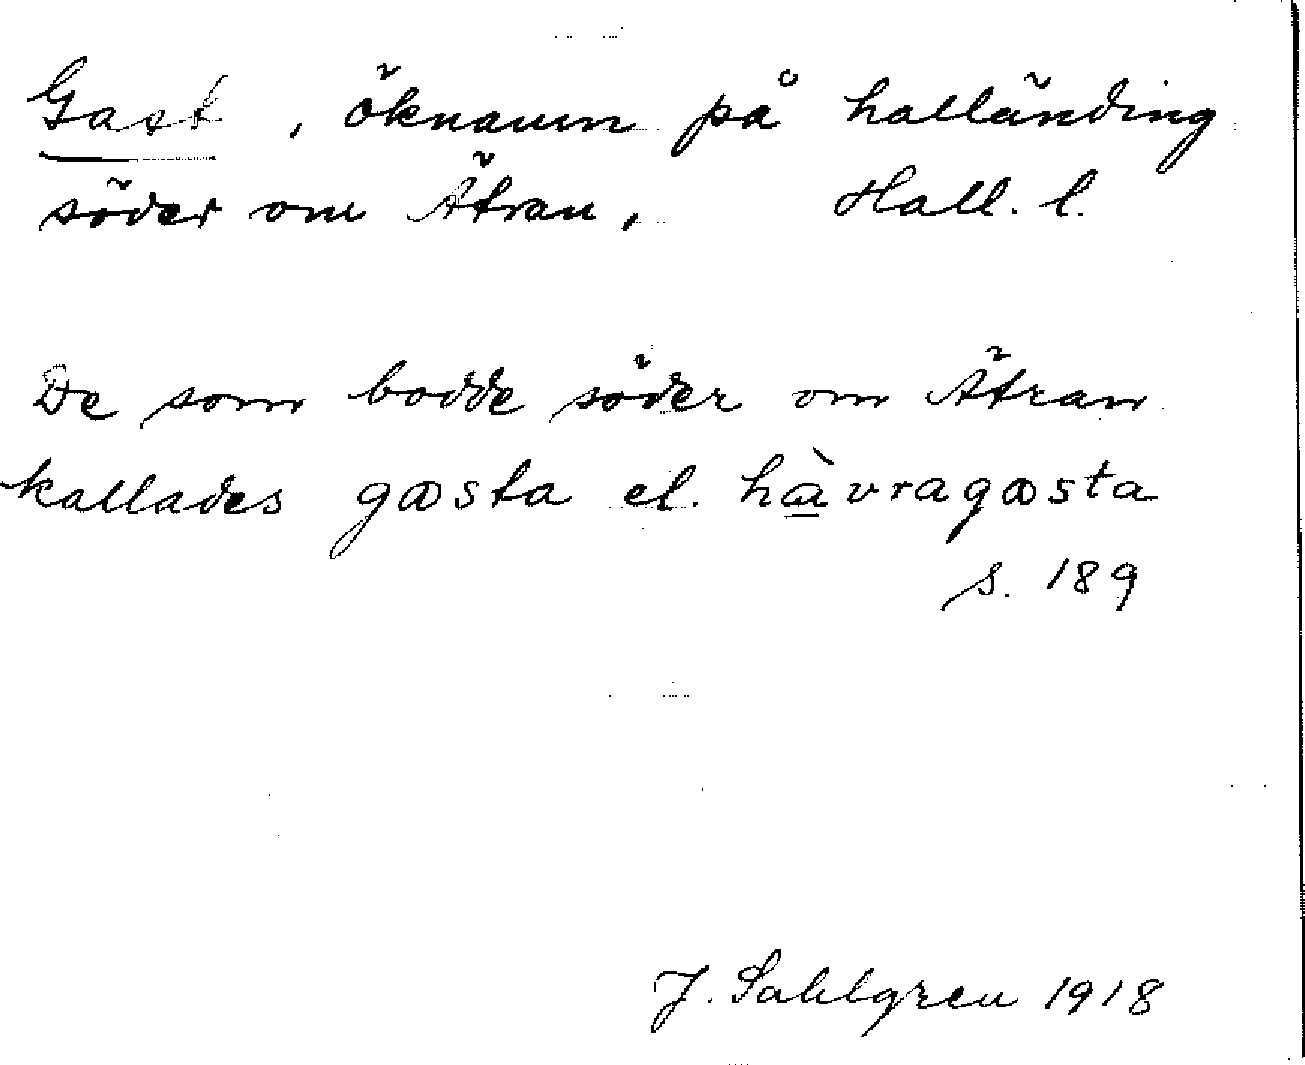 Gast, öknamn på halländing
söder om Ätran, Hall. l.
De som bodde söder om Ätran
kallades gæsta el. hàvragæsta
s. 189
J. Sahlgren 1918